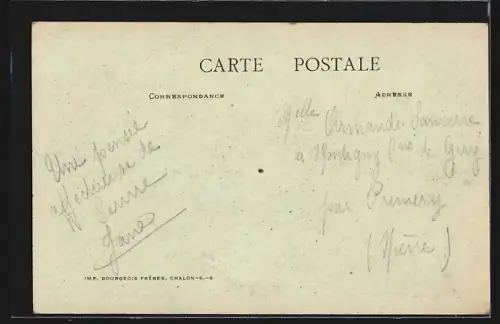 CARTE POSTALE
CORRESPONDANCE
ADRESSE
Une pensée
affectueuse de
Jane
Melle Armande Sancerre
à Montigny Cne de Giry
par Prémery
(Nièvre)
IMP. BOURGEOIS FRÈRES, CHALON-S.-S